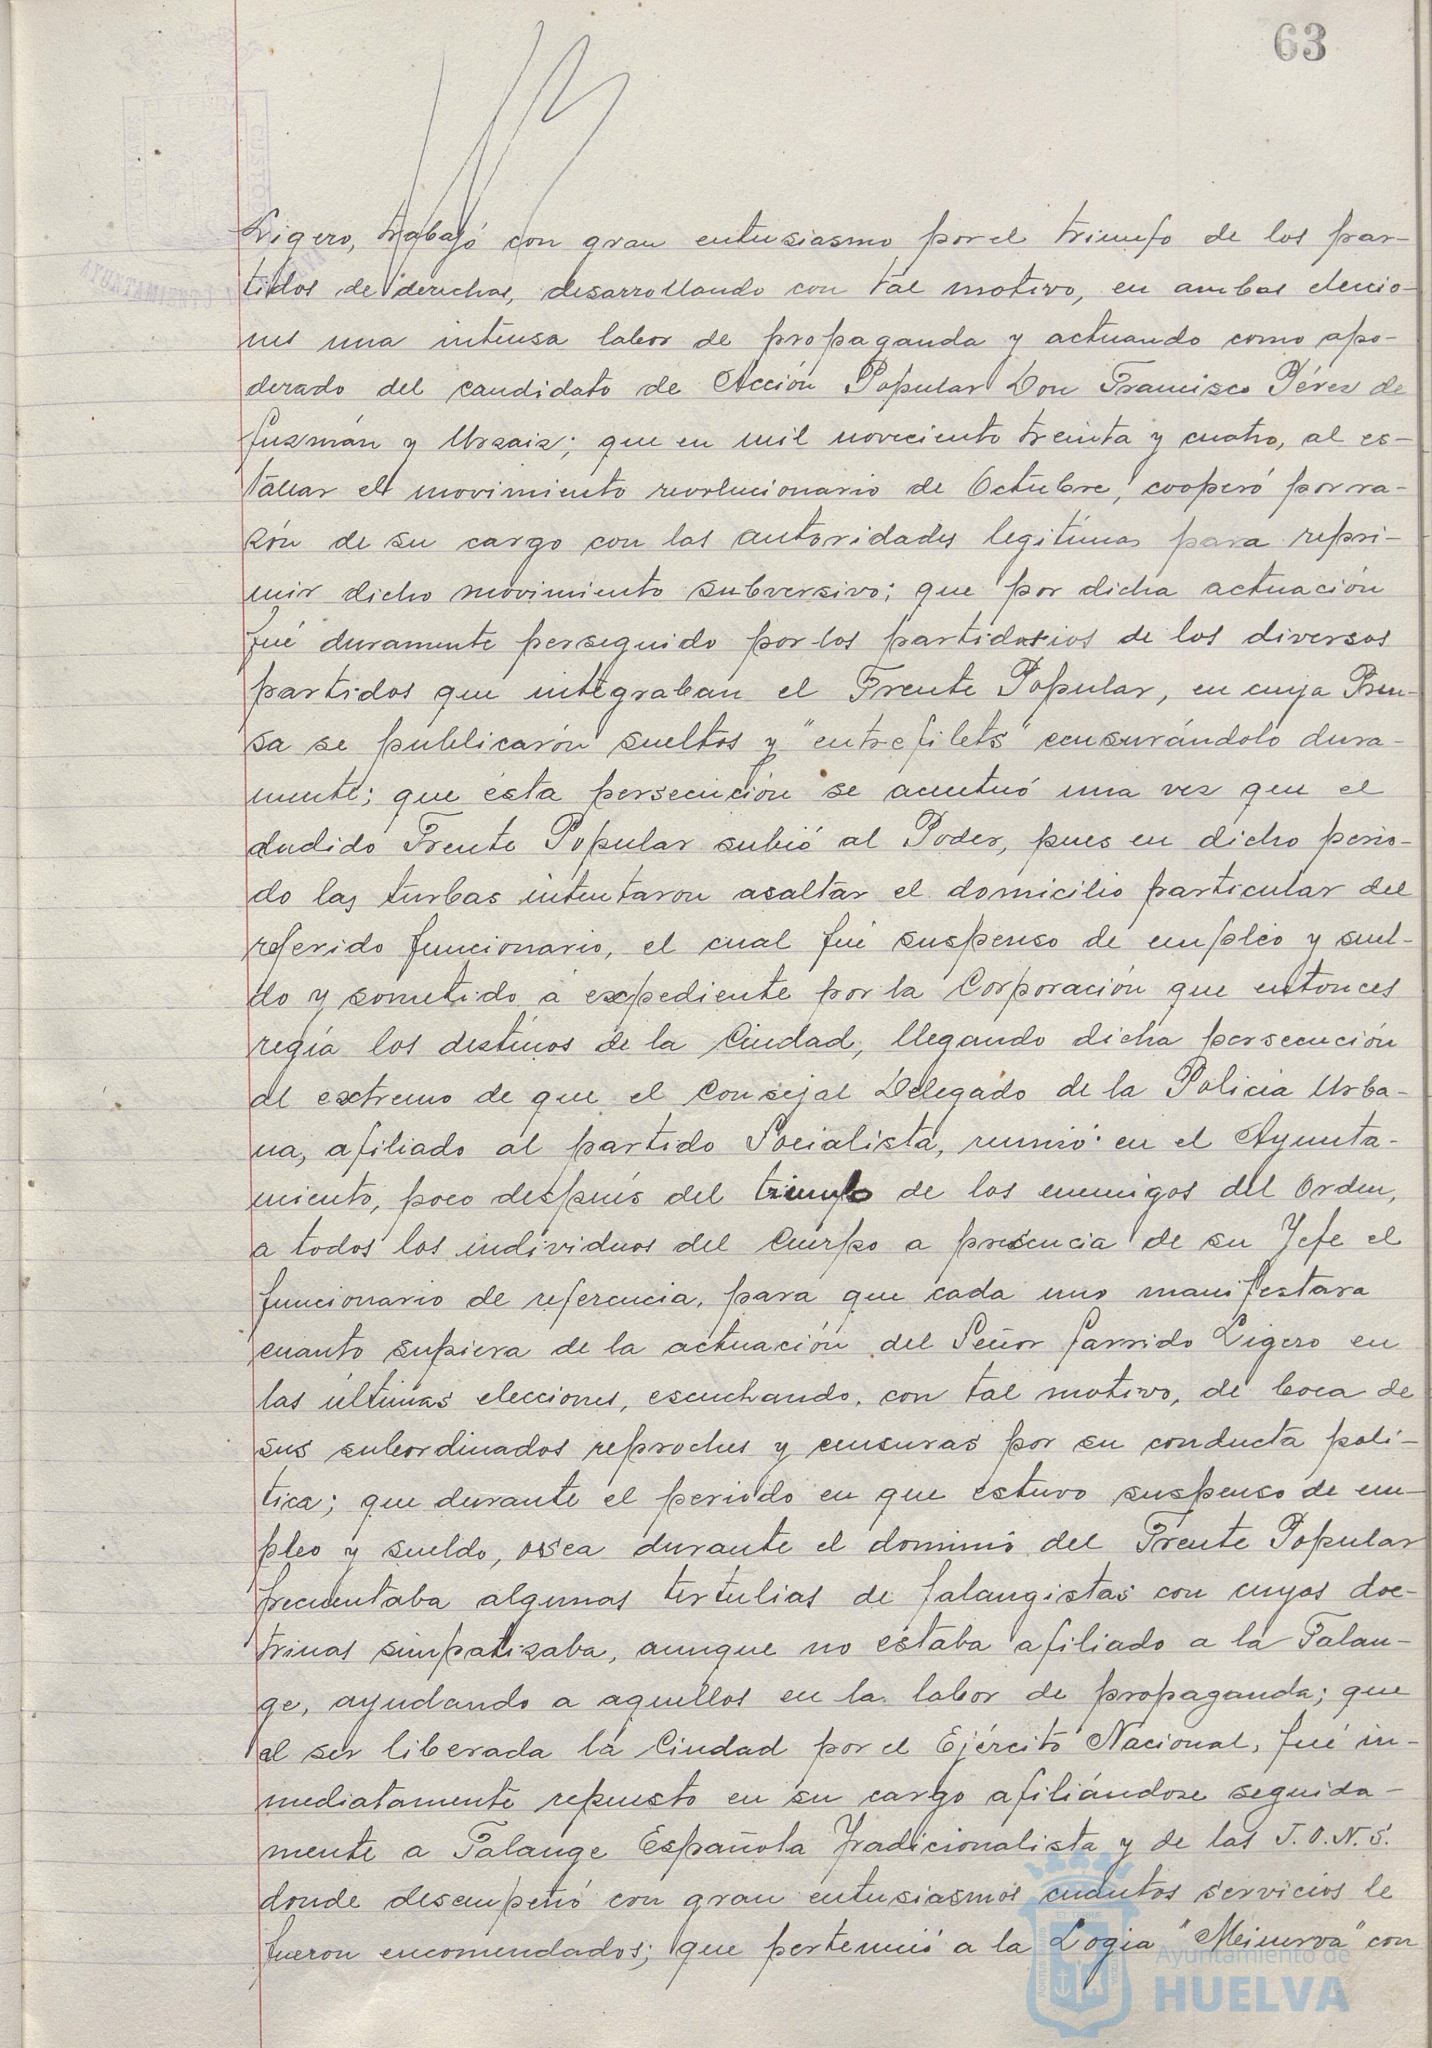 63
Ligero, trabajó con gran entusiasmo por el triunfo de los par-
tidos de derechas, desarrollando con tal motivo, en ambas eleccio-
nes una intensa labor de propaganda y actuando como apo-
derado del candidato de Acción Popular Don Francisco Pérez de
Guzmán y Urzaiz; que en mil noveciento treinta y cuatro, al es-
tallar el movimiento revolucionario de Octubre, cooperó por ra-
zón de su cargo con las autoridades legítimas para repri-
mir dicho movimiento subversivo; que por dicha actuación
fué duramente perseguido por los partidarios de los diversos
partidos que integraban el Frente Popular, en cuya Pren-
sa se publicarón sueltos y "entrefilets" censurándolo dura-
mente; que ésta persecución se acentuó una vez que el
aludido Frente Popular subió al Poder, pues en dicho perio-
do las turbas intentaron asaltar el domicilio particular del
referido funcionario, el cual fué suspenso de empleo y suel-
do y sometido a expediente por la Corporación que entonces
regía los destinos de la Ciudad, llegando dicha persecución
al extremo de que el Consejal Delegado de la Policía Urba-
na, afiliado al partido Socialista, reunió en el Ayunta-
miento, poco después del triunfo de los enemigos del Orden,
a todos los individuos del Cuerpo a presencia de su Jefe el
funcionario de referencia, para que cada uno manifestara
cuanto supiera de la actuación del Señor Garrido Ligero en
las últimas elecciones, escuchando, con tal motivo, de boca de
sus subordinados reproches y censuras por su conducta polí-
tica; que durante el periodo en que estuvo suspenso de em-
pleo y sueldo, osea durante el dominio del Frente Popular
frecuentaba algunas tertulias de falangistas con cuyas doc-
trinas simpatizaba, aunque no estaba afiliado a la Falan-
ge, ayudando a aquellos en la labor de propaganda; que
al ser liberada la Ciudad por el Ejército Nacional, fué in-
mediatamente repuesto en su cargo afiliándose seguida-
mente a Falange Española Tradicionalista y de las J.O.N.S.
donde desempeñó con gran entusiasmos cuantos servicios le
fueron encomendados; que perteneció a la Logia "Minerva" con
Ayuntamiento de
HUELVA